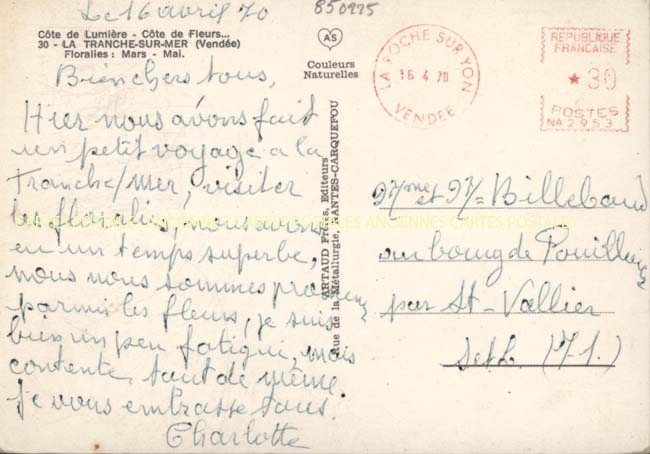 Le 16 avril 70
850225
Côte de Lumière - Côte de Fleurs...
30 - LA TRANCHE-SUR-MER (Vendée)
Floralies : Mars - Mai.
AS
Couleurs
Naturelles
LA ROCHE SUR YON
16 4 70
VENDEE
REPUBLIQUE
FRANCAISE
★ 30
POSTES
NA 2953
Bien chers tous,
Hier nous avons fait
un petit voyage a la
Tranche/mer, visiter
les floralies, nous avons
eu un temps superbe,
nous nous sommes promenés
parmis les fleurs, je suis
bien un peu fatigué, mais
contente, tout de même
Je vous embrasse tous.
Charlotte
ARTAUD Frères, Editeurs
Rue de la Métallurgie, NANTES-CARQUEFOU
et Billebaud
au bourg de Pouilloux
par St-Vallier
S et L. (71.)
CARTES POSTALES ANCIENNES CARTES POSTALES